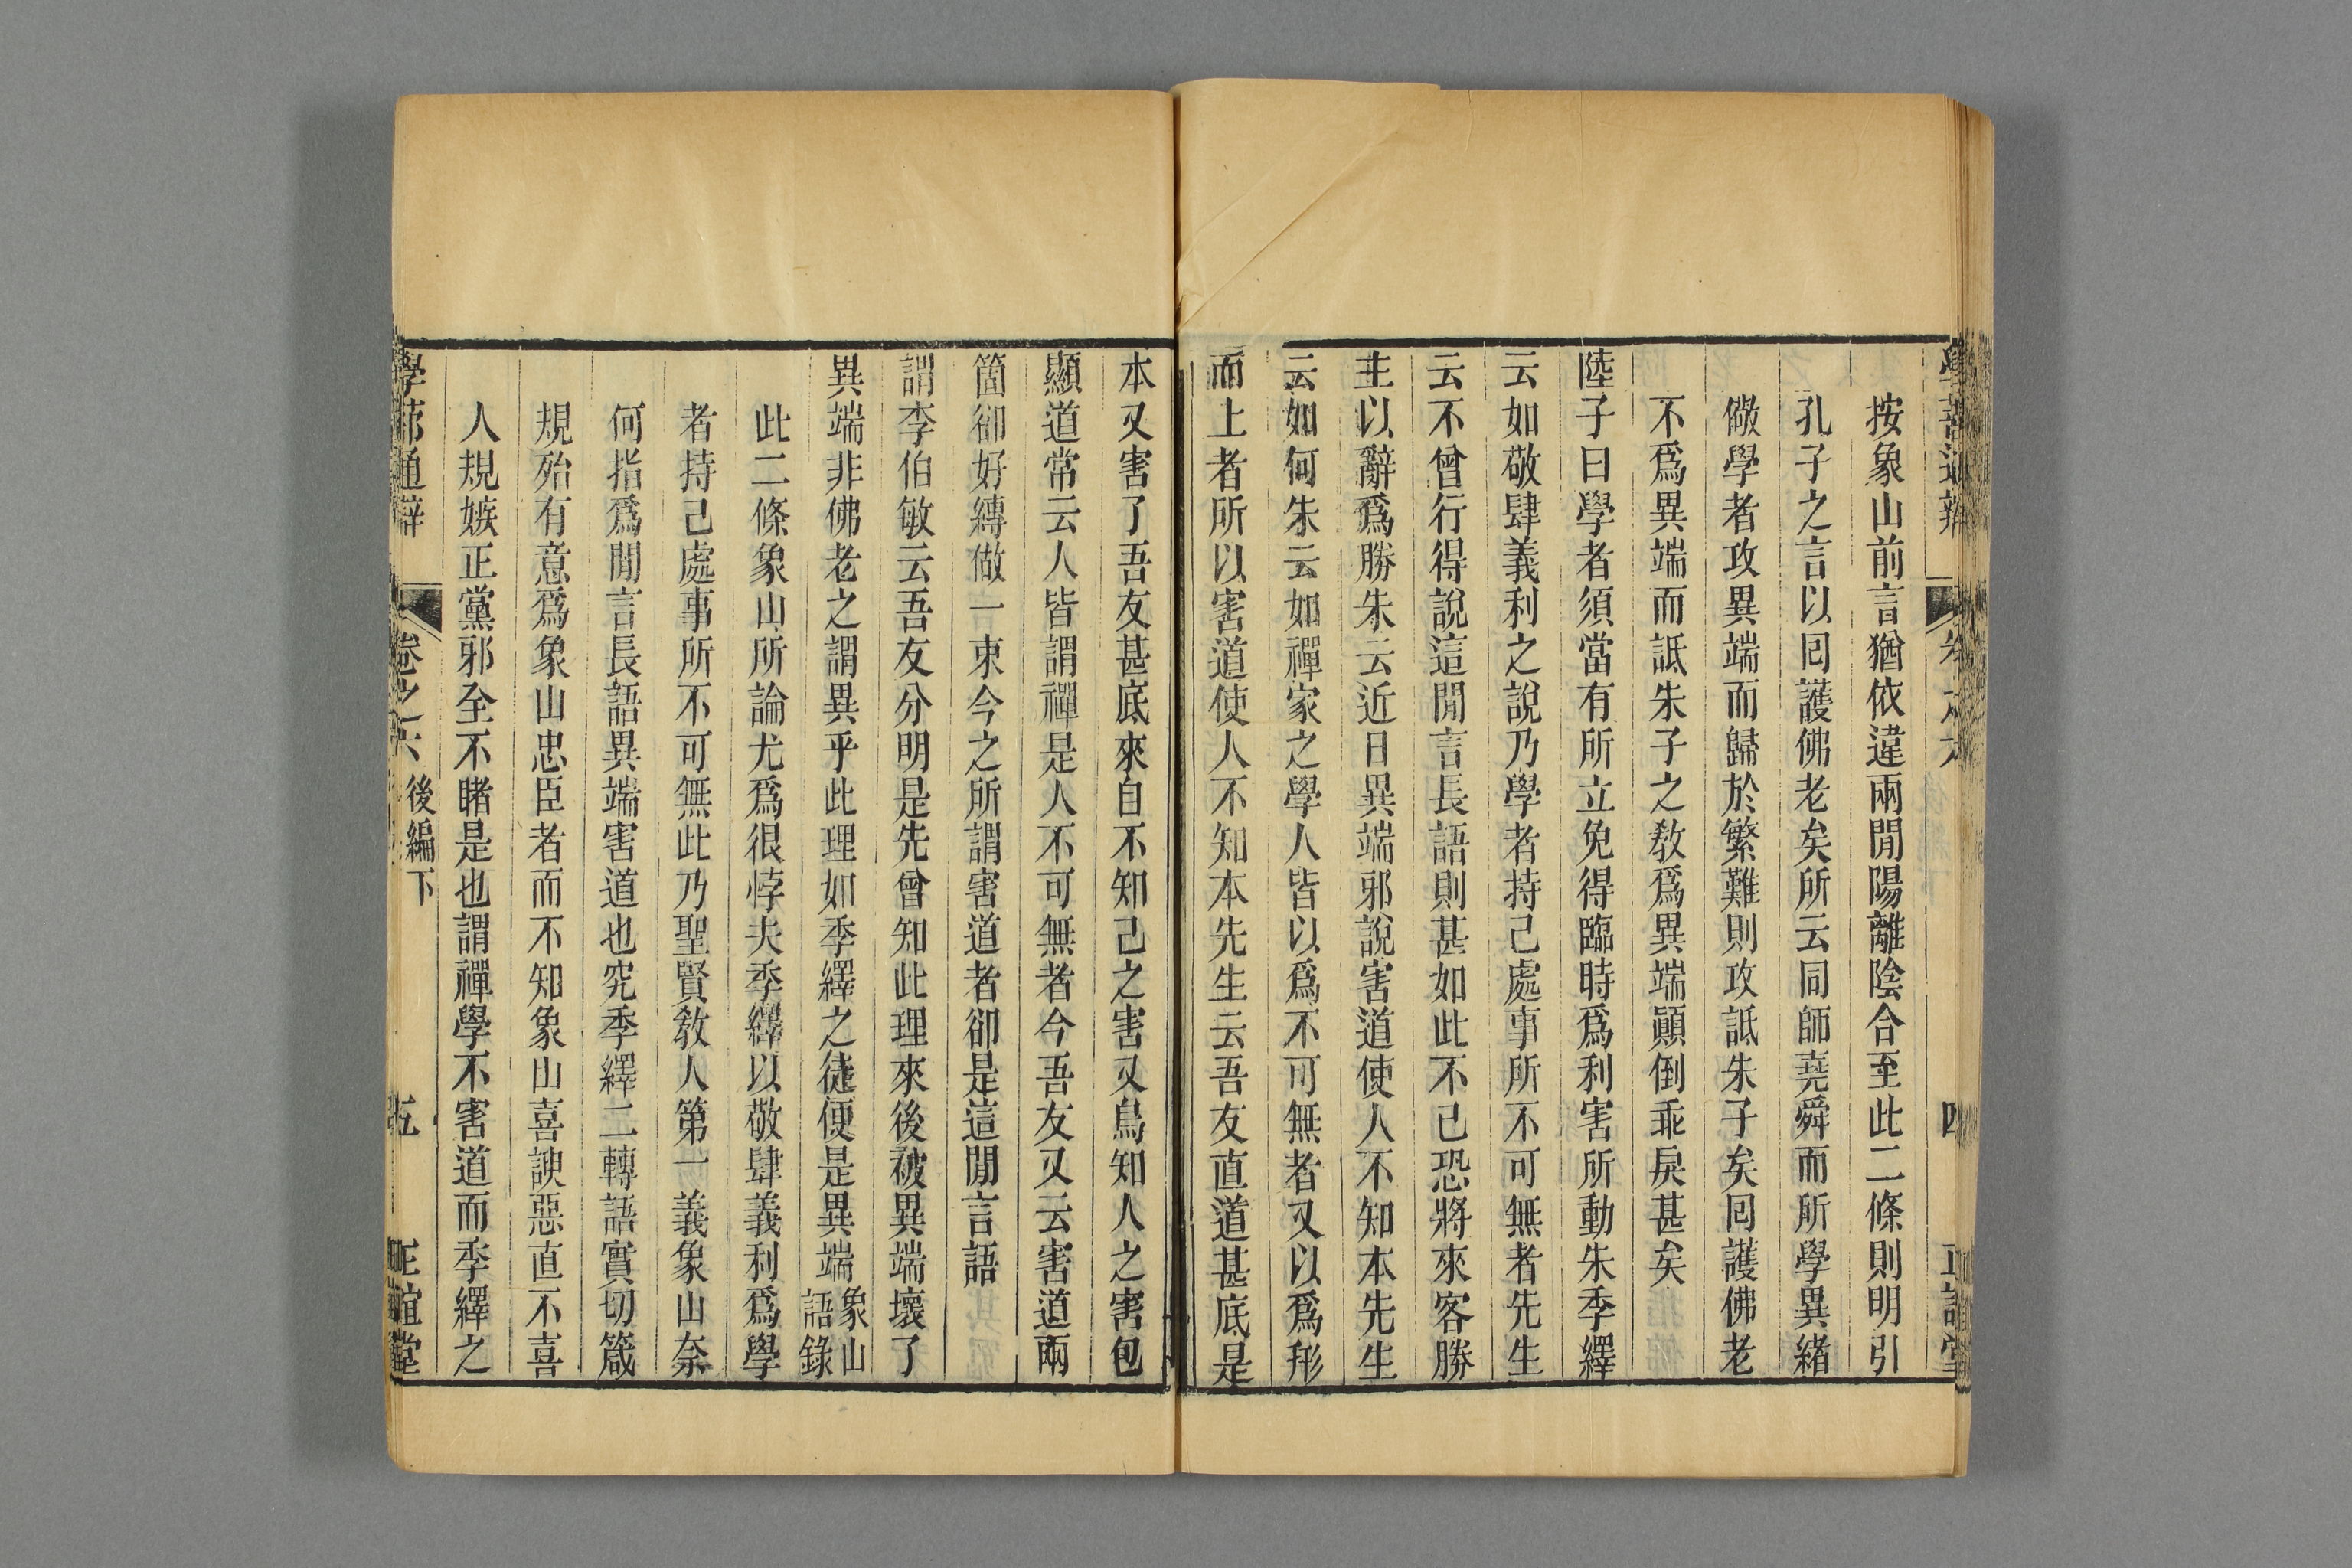 按象山前言猶依違兩閒陽離陰合至此二條則明引
孔子之言以囘護佛老矣所云同師堯舜而所學異緒
儆學者攻異端而歸於繁難則攻詆朱子矣囘護佛老
不爲異端而詆朱子之教爲異端顚倒乖戾甚矣
陸子曰學者須當有所立免得臨時爲利害所動朱季繹
云如敬肆義利之說乃學者持己處事所不可無者先生
云不曾行得說這閒言長語則甚如此不已恐將來客勝
主以辭爲勝朱云近日異端邪說害道使人不知本先生
云如何朱云如禪家之學人皆以爲不可無者又以爲形
而上者所以害道使人不知本先生云吾友直道甚底是
本又害了吾友甚底來自不知己之害又烏知人之害包
顯道常云人皆謂禪是人不可無者今吾友又云害道兩
箇卻好縛做一束今之所謂害道者卻是這閒言語
謂李伯敏云吾友分明是先曾知此理來後被異端壞了
異端非佛老之謂異乎此理如季繹之徒便是異端象山語錄
此二條象山所論尤爲很悖夫季繹以敬肆義利爲學
者持己處事所不可無此乃聖賢教人第一義象山奈
何指爲閒言長語異端害道也究季繹二轉語實切箴
規殆有意爲象山忠臣者而不知象山喜諛惡直不喜
人規嫉正黨邪至不睹是也謂禪學不害道而季繹之
學蔀通辯 卷之六 後編下 五 正誼堂